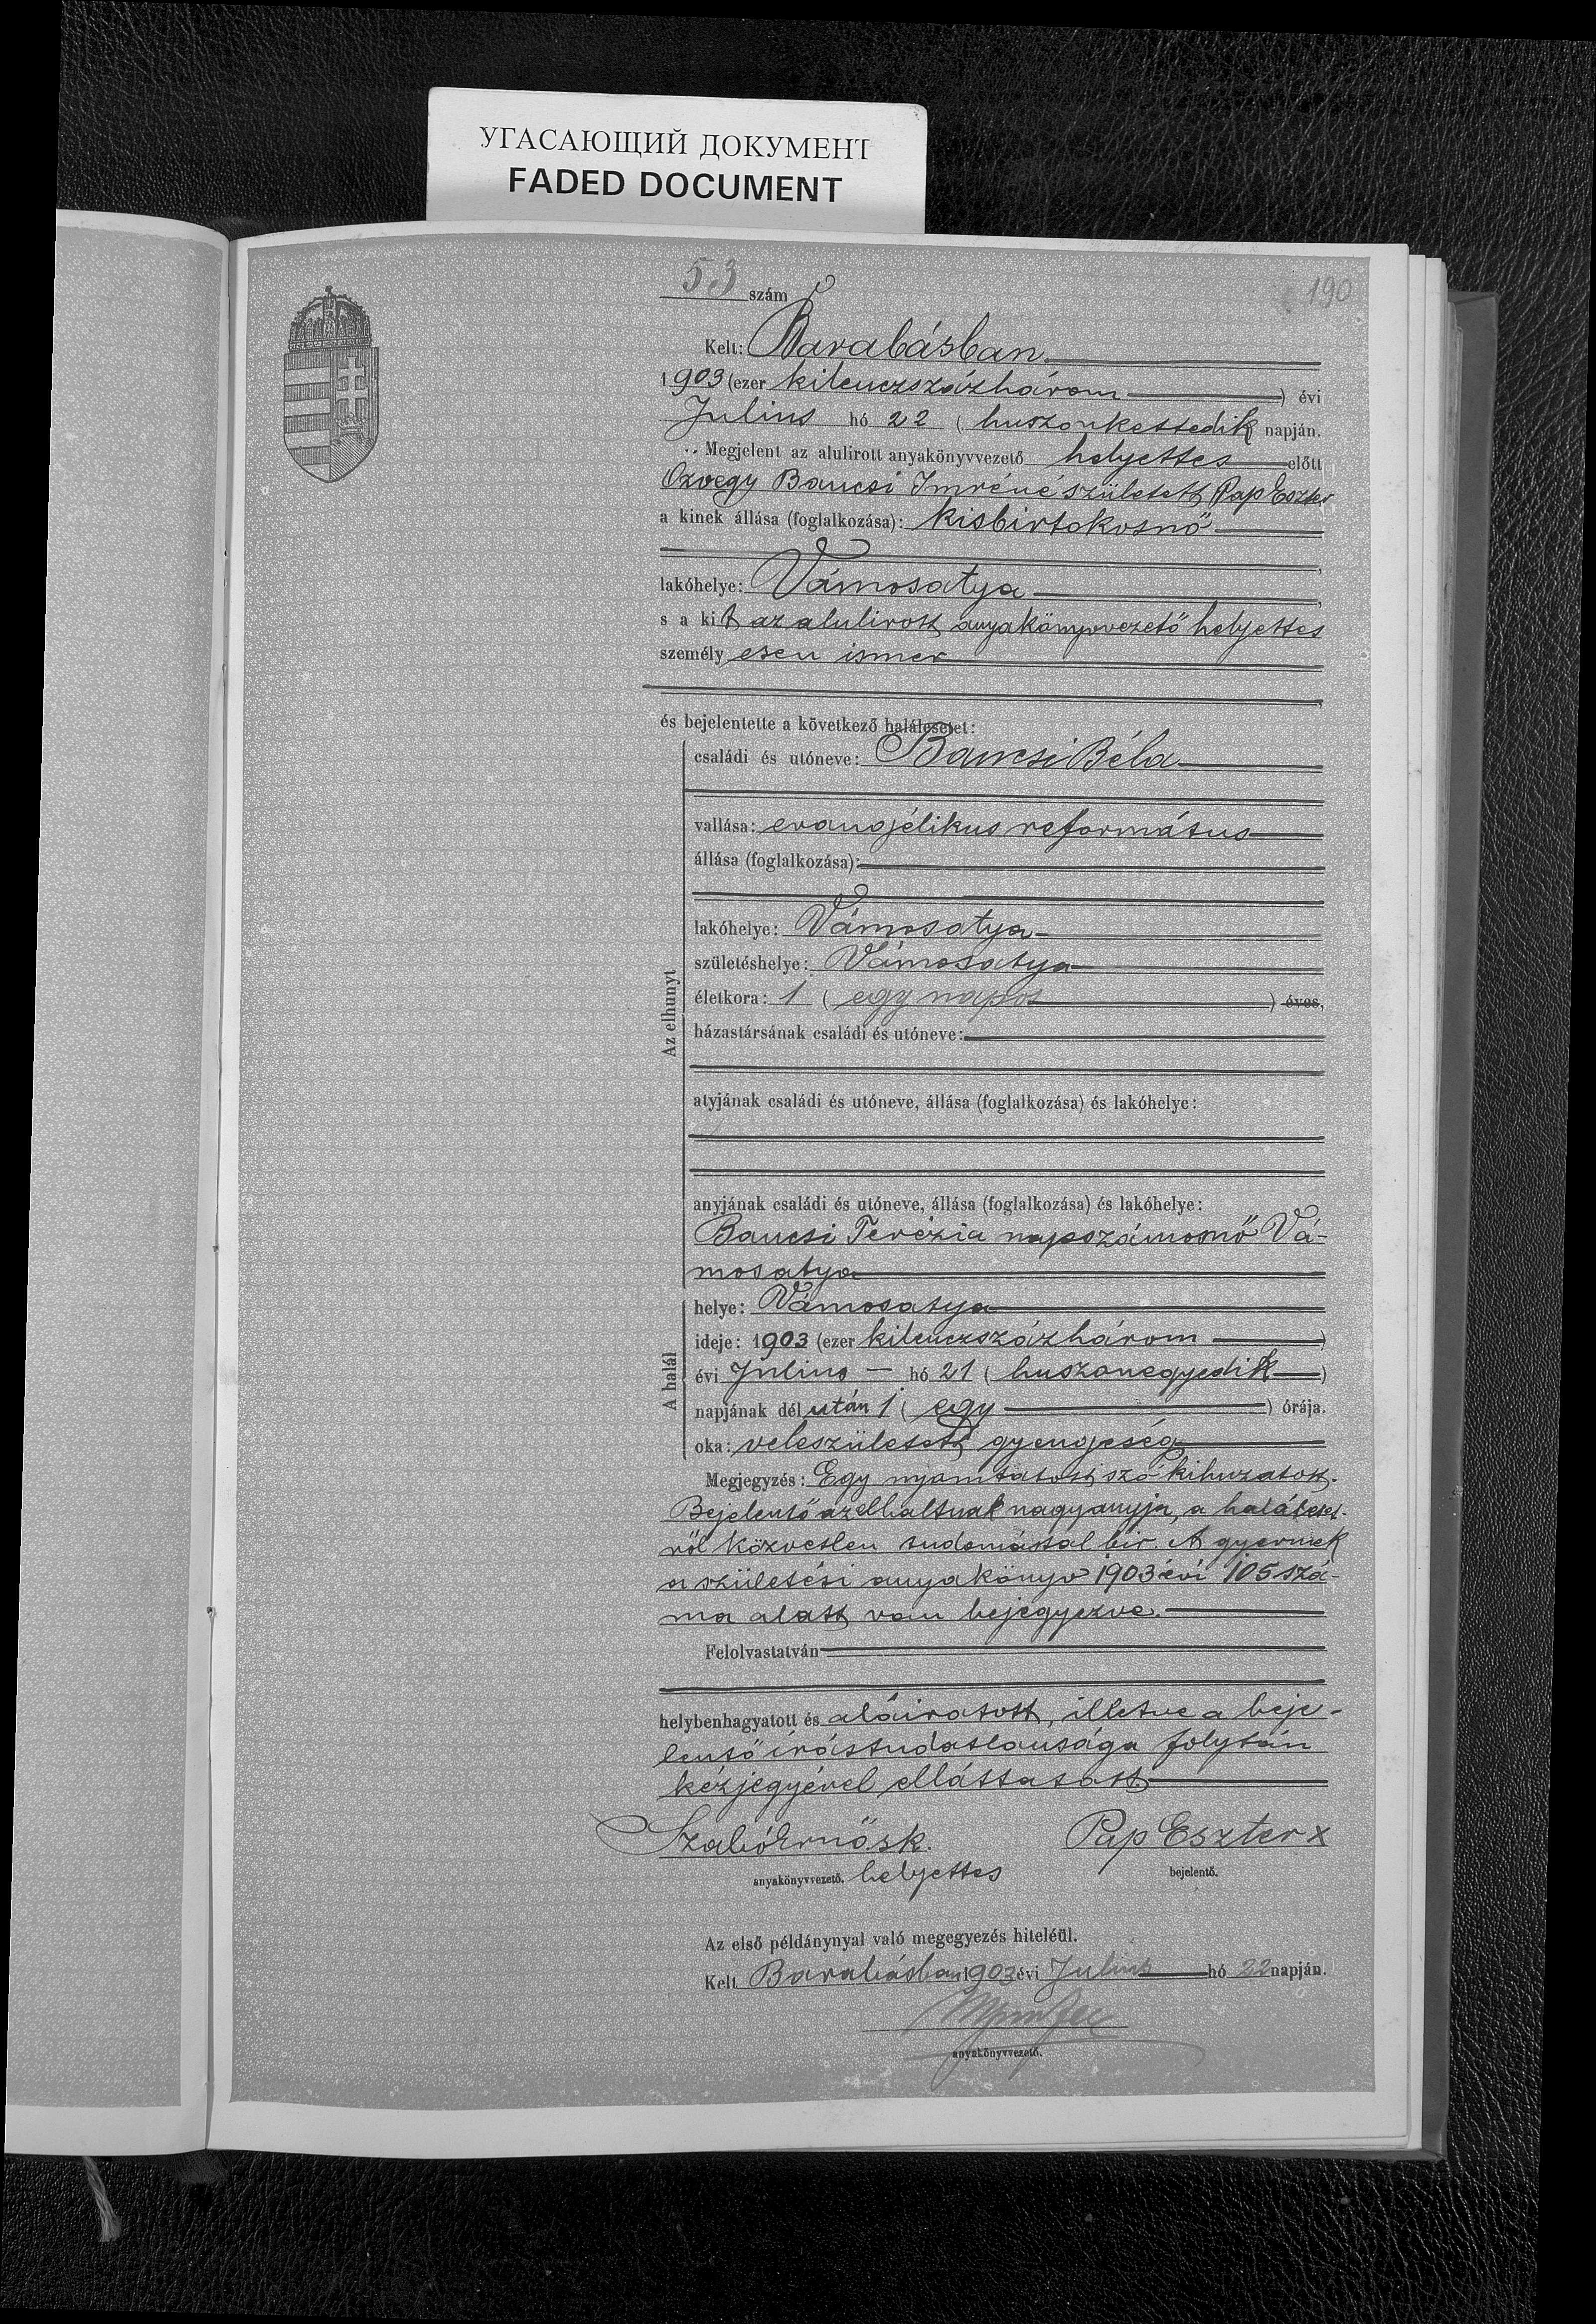 УГАСАЮЩИЙ ДОКУМЕНТ
FADED DOCUMENT
190
53 szám
Kelt: Barabásban
1903 (ezer kilenczszázhárom) évi
Julius hó 22 (huszonkettedik) napján.
Megjelent az alulirott anyakönyvvezető helyettes előtt
Özvegy Bancsi Imréné született Pap Eszter
a kinek állása (foglalkozása): kisbirtokosnő
lakóhelye: Vámosatya,
s a kit az alulirott anyakönyvvezető helyettes
személyesen ismer
és bejelentette a következő halálesetet:
Az elhunyt
családi és utóneve: Bancsi Béla
vallása: evangélikus református
állása (foglalkozása):
lakóhelye: Vámosatya
születéshelye: Vámosatya
életkora: 1 (egy napos) éves,
házastársának családi és utóneve:
atyjának családi és utóneve, állása (foglalkozása) és lakóhelye:
anyjának családi és utóneve, állása (foglalkozása) és lakóhelye:
Bancsi Terézia napszámosnő Vá-
mosatya
A halál
helye: Vámosatya
ideje: 1903 (ezer kilenczszázhárom)
évi Julius hó 21 (huszonegyedik)
napjának dél után 1 (egy) órája.
oka: veleszületett gyengeség
Megjegyzés: Egy nyomtatott szó kihuzatott.
Bejelentő az elhaltnak nagyanyja, a haláleset-
ről közvetlen tudomással bir. A gyermek
a születési anyakönyv 1903 évi 105 szá-
ma alatt van bejegyezve.
Felolvastatván
helybenhagyatott és aláiratott, illetve a beje-
lentő írástudatlansága folytán
kézjegyével elláttatott
Szabó Ernő s.k. Pap Eszter x
anyakönyvvezető. helyettes bejelentő.
Az első példánynyal való megegyezés hiteléül.
Kelt Barabásban 1903 évi Julius hó 22 napján.
anyakönyvvezető.